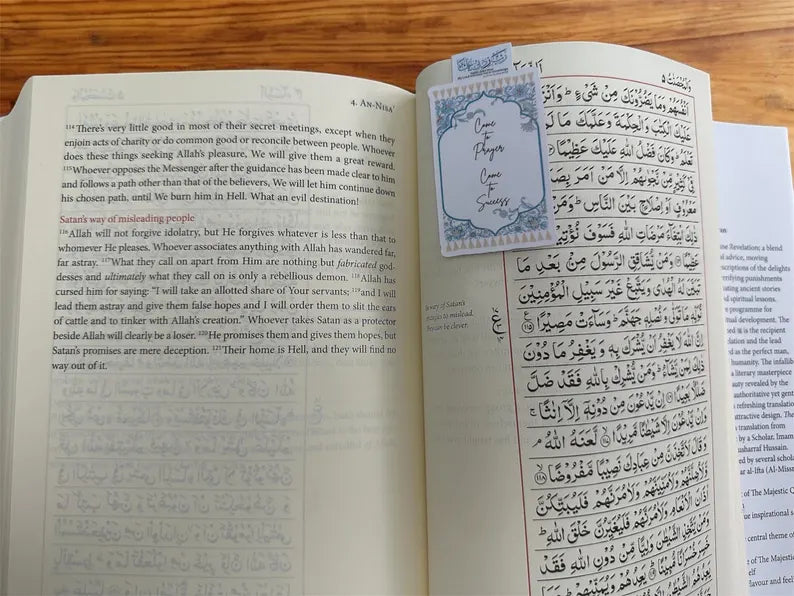 4. An-Nisa'
114 There's very little good in most of their secret meetings, except when they
enjoin acts of charity or do common good or reconcile between people. Whoever
does these things seeking Allah's pleasure, We will give them a great reward.
115 Whoever opposes the Messenger after the guidance has been made clear to him
and follows a path other than that of the believers, We will let him continue down
his chosen path, until We burn him in Hell. What an evil destination!
Satan's way of misleading people
116 Allah will not forgive idolatry, but He forgives whatever is less than that to
whomever He pleases. Whoever associates anything with Allah has wandered far,
far astray. 117 What they call on apart from Him are nothing but fabricated god-
desses and ultimately what they call on is only a rebellious demon. 118 Allah has
cursed him for saying: "I will take an allotted share of Your servants; 119 and I will
lead them astray and give them false hopes and I will order them to slit the ears
of cattle and to tinker with Allah's creation." Whoever takes Satan as a protector
beside Allah will clearly be a loser. 120 He promises them and gives them hopes, but
Satan's promises are mere deception. 121 Their home is Hell, and they will find no
way out of it.
Come
to
Prayer
Come
to
Success
way of Satan's
to mislead.
can be clever.
وَالْمُحْصَنٰتُ ٥
اَنْفُسَهُمْ وَمَا يَضُرُّوْنَكَ مِنْ شَیْءٍ ؕ وَاَنْزَ
عَلَيْكَ الْكِتٰبَ وَالْحِكْمَةَ وَعَلَّمَكَ مَا لَمْ
تَعْلَمُ ؕ وَكَانَ فَضْلُ اللّٰهِ عَلَيْكَ عَظِيْمًا
فِیْ كَثِيْرٍ مِّنْ نَّجْوٰىهُمْ اِلَّا مَنْ اَمَرَ بِصَ
مَعْرُوْفٍ اَوْ اِصْلَاحٍۭ بَيْنَ النَّاسِ ؕ وَمَنْ
ذٰلِكَ ابْتِغَآءَ مَرْضَاتِ اللّٰهِ فَسَوْفَ نُؤْتِيْ
عَظِيْمًا وَمَنْ يُّشَاقِقِ الرَّسُوْلَ مِنْۢ بَعْدِ مَا
تَبَيَّنَ لَهُ الْهُدٰی وَيَتَّبِعْ غَيْرَ سَبِيْلِ الْمُؤْمِنِيْنَ
نُوَلِّهٖ مَا تَوَلّٰی وَنُصْلِهٖ جَهَنَّمَ ؕ وَسَآءَتْ مَصِيْرًا ١١٥
اِنَّ اللّٰهَ لَا يَغْفِرُ اَنْ يُّشْرَكَ بِهٖ وَيَغْفِرُ مَا دُوْنَ
ذٰلِكَ لِمَنْ يَّشَآءُ ؕ وَمَنْ يُّشْرِكْ بِاللّٰهِ فَقَدْ ضَلَّ
ضَلٰلًاۢ بَعِيْدًا اِنْ يَّدْعُوْنَ مِنْ دُوْنِهٖۤ اِلَّاۤ اِنٰثًا ۚ
وَاِنْ يَّدْعُوْنَ اِلَّا شَيْطٰنًا مَّرِيْدًا لَّعَنَهُ اللّٰهُ ۘ
وَقَالَ لَاَتَّخِذَنَّ مِنْ عِبَادِكَ نَصِيْبًا مَّفْرُوْضًا ١١٨
وَّلَاُضِلَّنَّهُمْ وَلَاُمَنِّيَنَّهُمْ وَلَاٰمُرَنَّهُمْ فَلَيُبَتِّكُنَّ
اٰذَانَ الْاَنْعَامِ وَلَاٰمُرَنَّهُمْ فَلَيُغَيِّرُنَّ خَلْقَ اللّٰهِ ؕ
وَمَنْ يَّتَّخِذِ الشَّيْطٰنَ وَلِيًّا مِّنْ دُوْنِ اللّٰهِ فَقَدْ
خَسِرَ خُسْرَانًا مُّبِيْنًا يَعِدُهُمْ وَيُمَنِّيْهِمْ
يَعِدُهُمُ الشَّيْطٰنُ
e Revelation; a blend
al advice, moving
scriptions of the delights
errifying punishments
ating ancient stories
d spiritual lessons.
programme for
tual development. The
is the recipient
lation and the lead
as the perfect man,
humanity. The infallib
a literary masterpiece
auty revealed by the
authoritative yet gent
refreshing translatio
ttractive design. The
translation from
by a Scholar, Imam
usharraf Hussain.
ed by several schola
ar al-Ifta (Al-Missa
of The Majestic Q
ue inspirational s
central theme of
of The Majestic
elf
flavour and feel